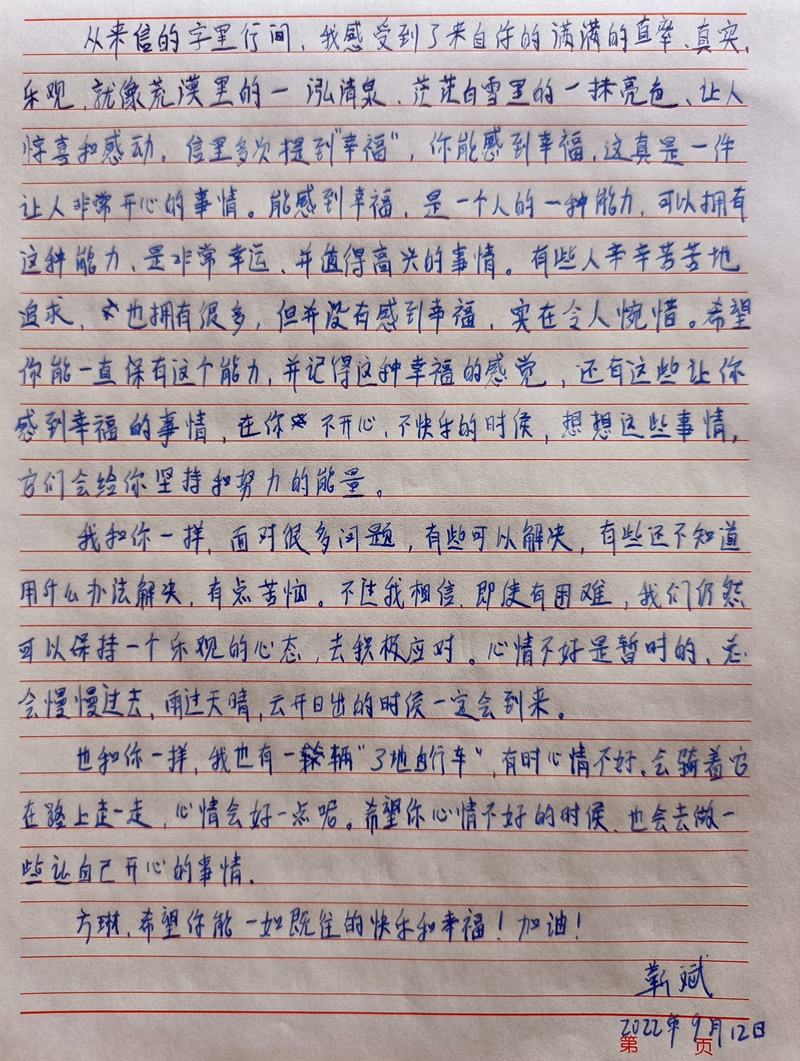 从来信的字里行间，我感受到了来自你的满满的直率、真实、
乐观，就像荒漠里的一泓清泉、茫茫白雪里的一抹亮色、让人
惊喜和感动。信里多次提到"幸福"，你能感到幸福，这真是一件
让人非常开心的事情。能感到幸福，是一个人的一种能力，可以拥有
这种能力、是非常幸运、并值得高兴的事情。有些人辛辛苦苦地
追求，也拥有很多，但并没有感到幸福，实在令人惋惜。希望
你能一直保有这个能力，并记得这种幸福的感觉，还有这些让你
感到幸福的事情，在你不开心、不快乐的时候，想想这些事情，
它们会给你坚持和努力的能量。
我和你一样，面对很多问题，有些可以解决，有些还不知道
用什么办法解决，有点苦恼。不过我相信，即使有困难，我们仍然
可以保持一个乐观的心态，去积极应对。心情不好是暂时的，总
会慢慢过去，雨过天晴，云开日出的时候一定会到来。
也和你一样，我也有一辆"了地自行车"，有时心情不好，会骑着它
在路上走一走，心情会好一点呢。希望你心情不好的时候，也会去做一
些让自己开心的事情。
方琳，希望你能一如既往的快乐和幸福！加油！
靳斌
2022年9月12日
第 页